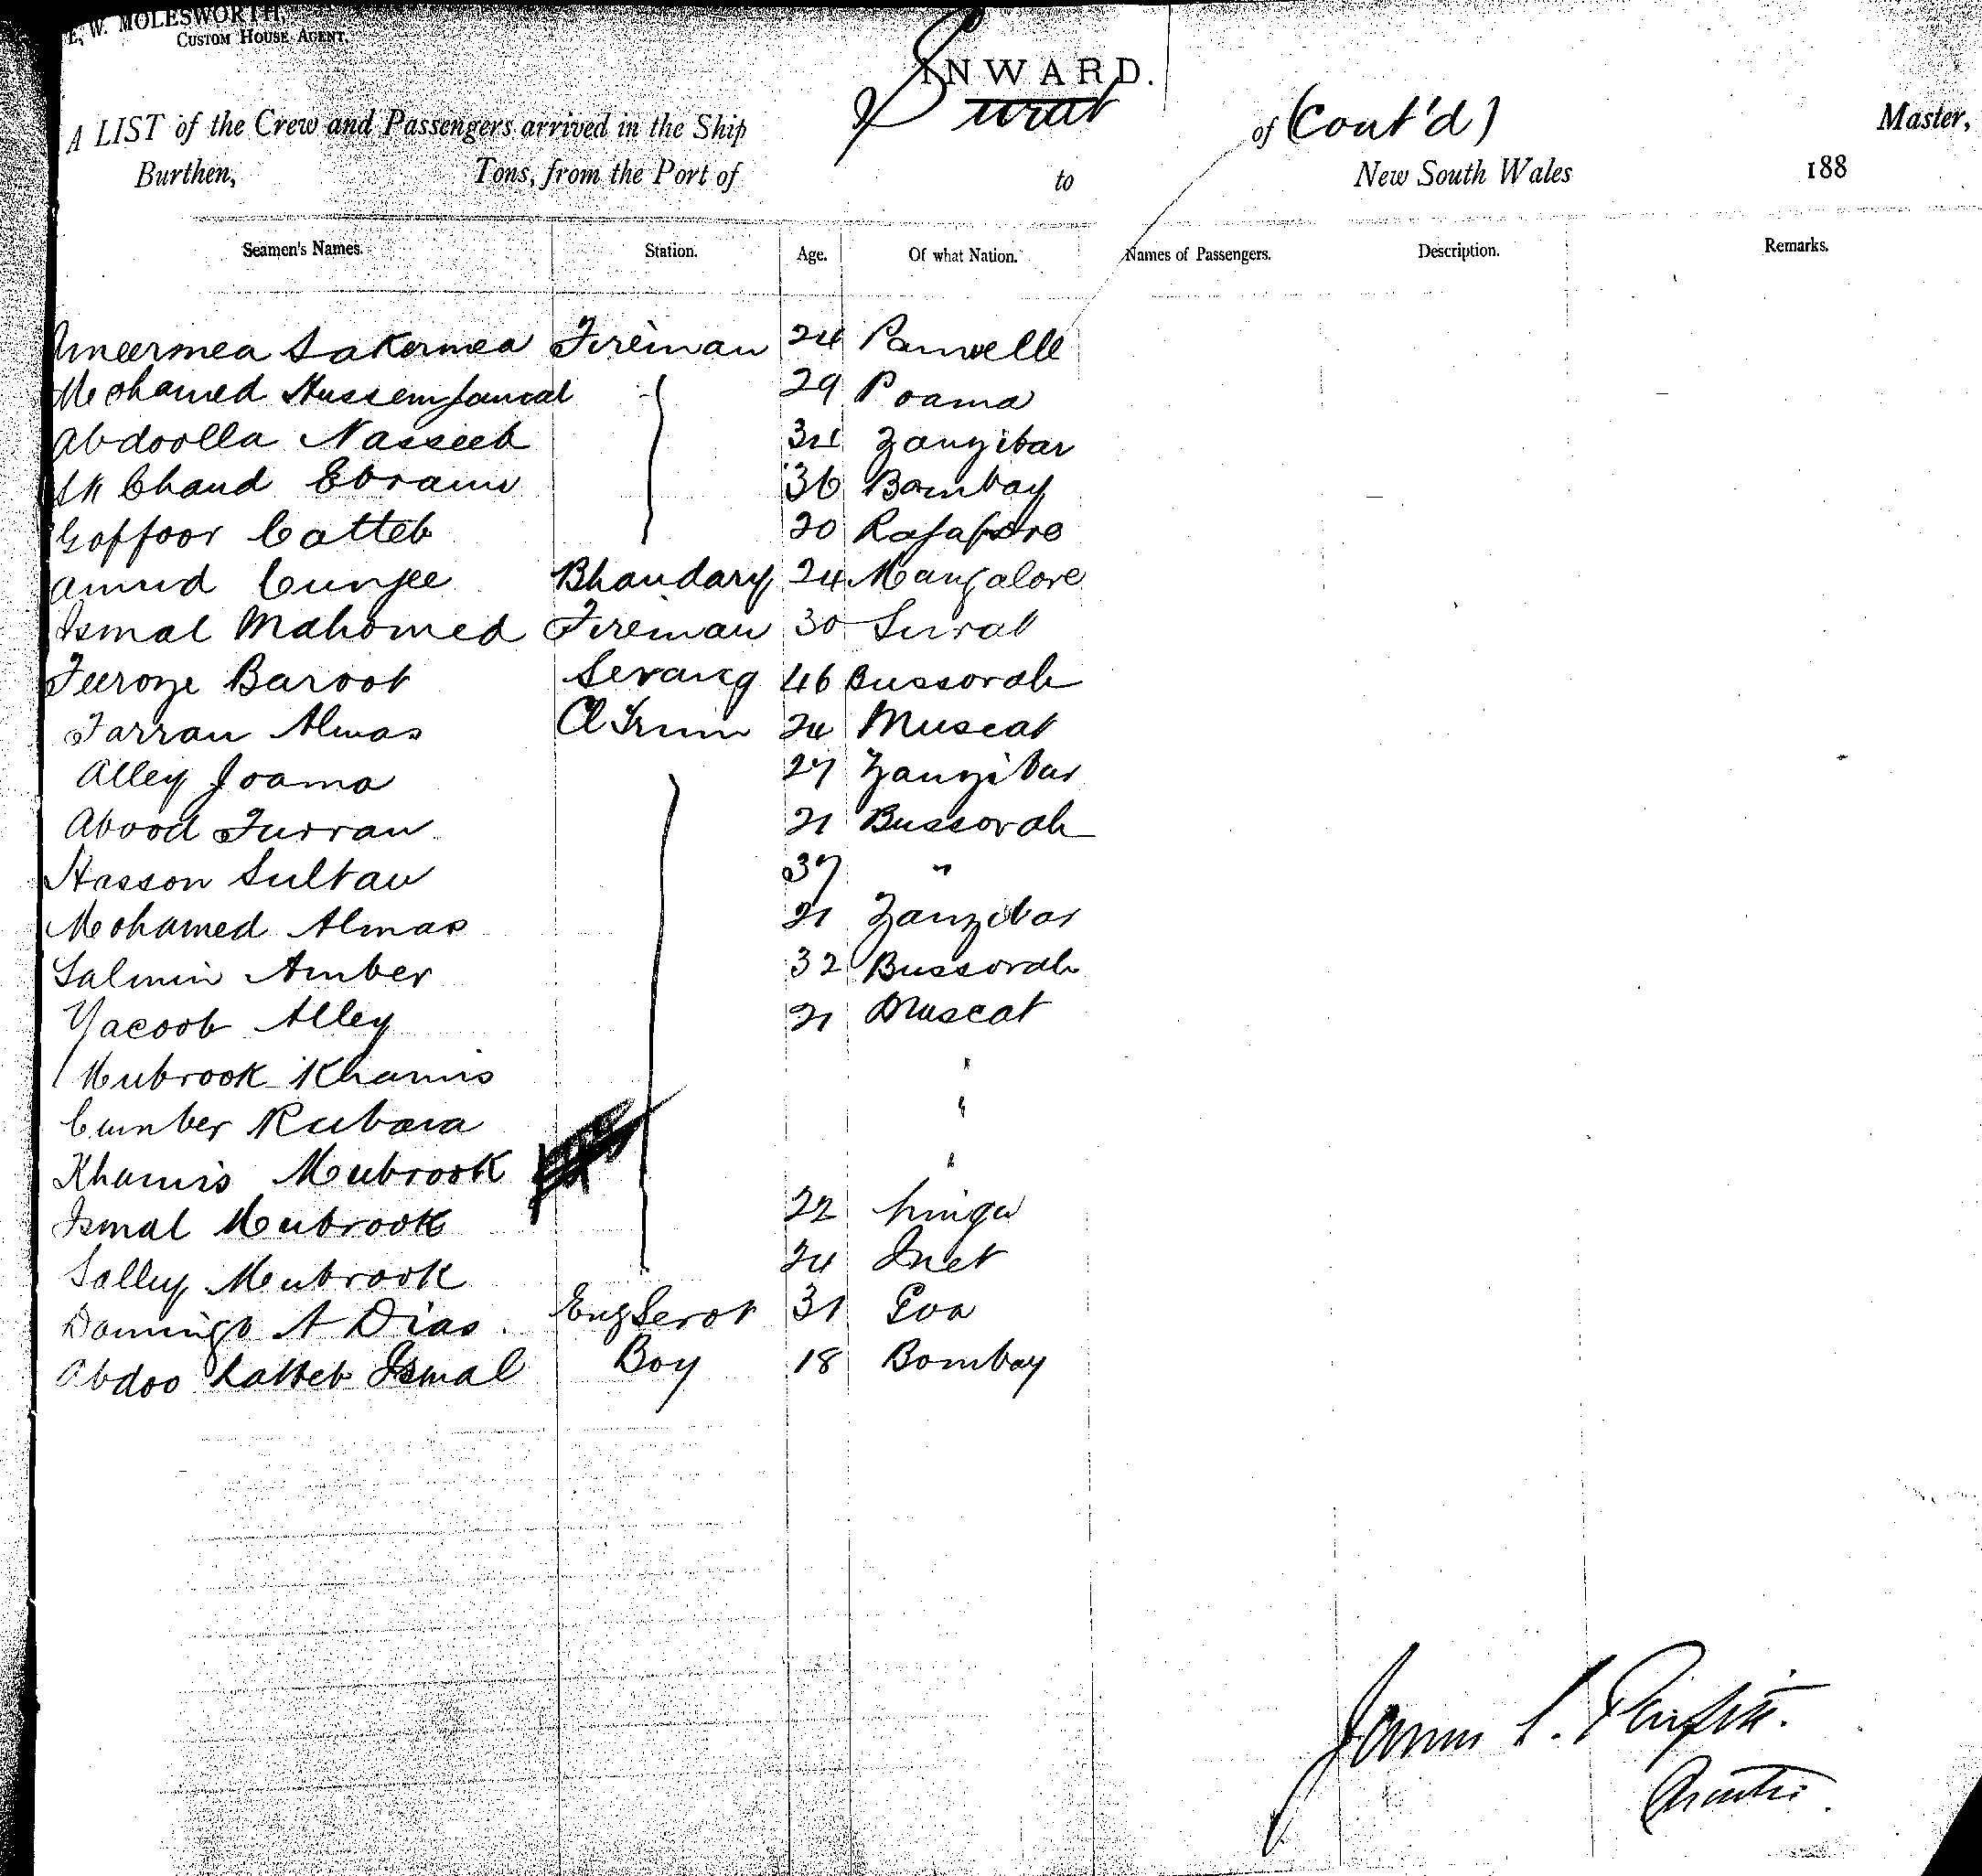 E. W. MOLESWORTH,
CUSTOM HOUSE AGENT.
INWARD.
A LIST of the Crew and Passengers arrived in the Ship Surat of (Cont'd) Master,
Burthen, Tons, from the Port of to New South Wales 188
Seamen's Names. Station. Age. Of what Nation. Names of Passengers. Description. Remarks.
Ameermea Sakermea Fireman 24 Panwelle
Mohamed Hussem Jamal 29 Poama
Abdoolla Nasseeb 34 Zanzibar
Sk Chand Ebram 36 Bombay
Goffoor Catteb 20 Rajapore
Amud Cunjee Bhandary 24 Mangalore
Ismal Mahomed Fireman 30 Surat
Feeroze Baroot Serang 46 Bussorah
Farran Almas Cl Trim 24 Muscat
Alley Joama 27 Zanzibar
Abood Furran 21 Bussorah
Hasson Sultan 37 "
Mohamed Almas 21 Zanzibar
Salmin Amber 32 Bussorah
Yacoob Alley 21 Muscat
Mubrook Khamis "
Cumber Rubaia "
Khamis Mubrook "
Ismal Mubrook 22 Linga
Salley Mubrook 24 Juet
Domingo A Dias Eng Servt 31 Goa
Abdoo Latteb Ismal Boy 18 Bombay
James L.